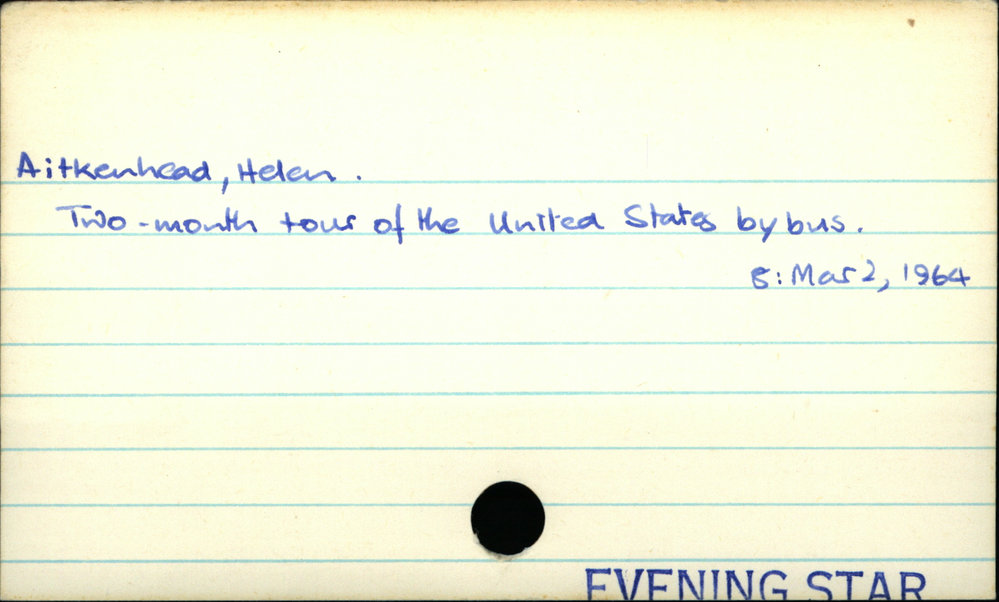 Aitkenhead, Helen.
Two-month tour of the United States by bus.
8: Mar 2, 1964
EVENING STAR